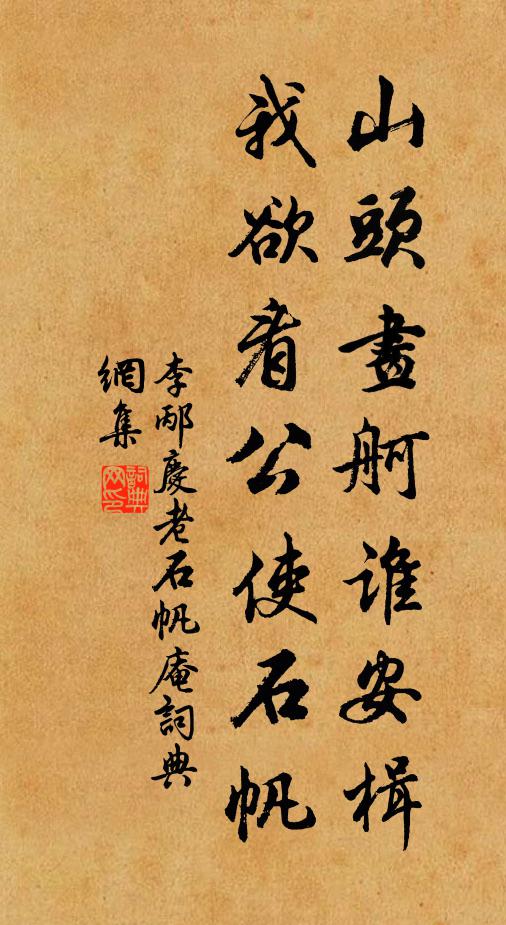 山頭畫舸誰安楫
我欲看公使石帆
李邴慶老石帆庵詞典
網集
詞典網印